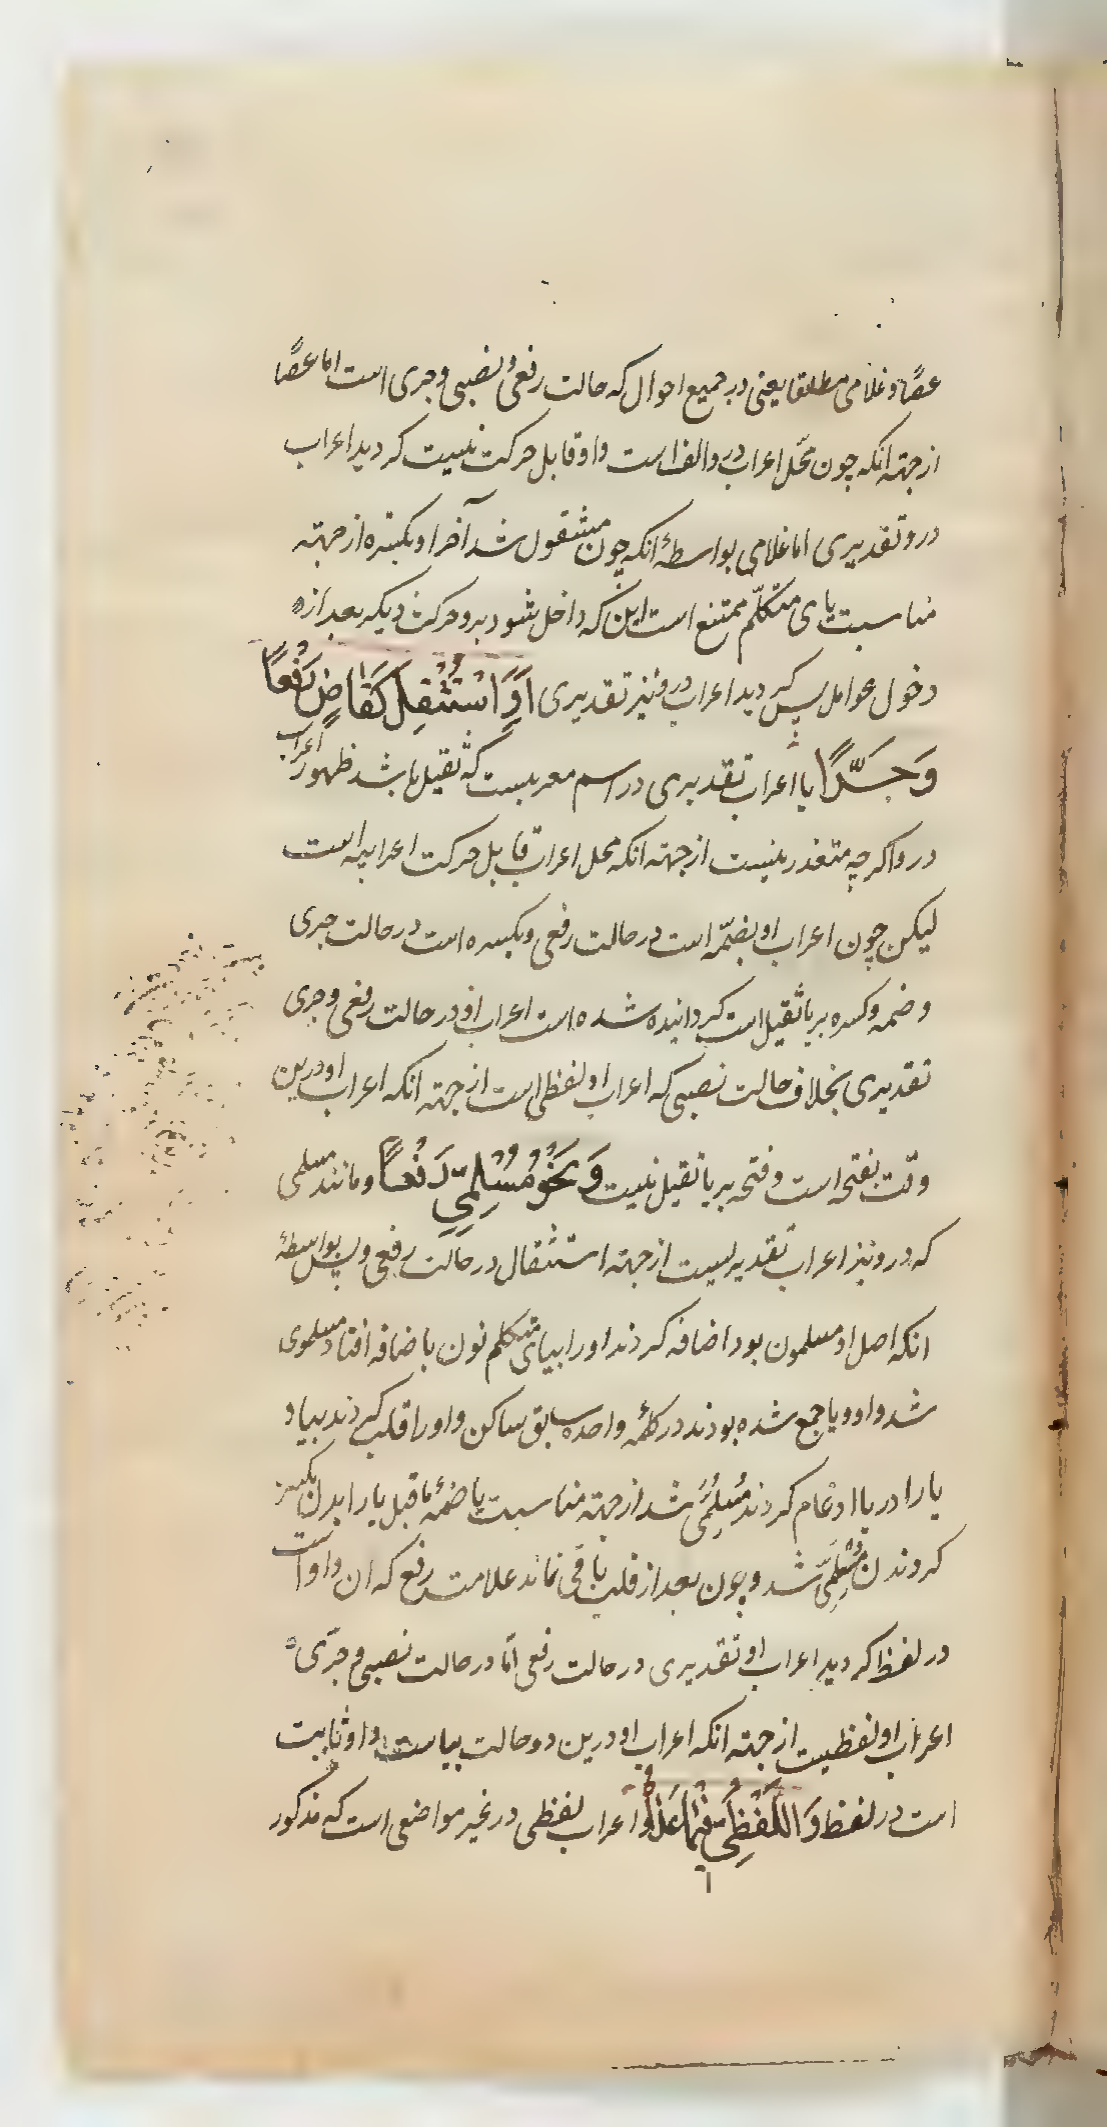 عصًا و غلامی مطلقا یعنی در جمیع احوال که حالت رفعی و نصبی و جری است اما عصًا
از جهته انکه چون محل اعراب درو الف است و او قابل حرکت نیست کردید اعراب
درو تقدیری اما غلامی بواسطهٔ انکه چون مشغول شد آخر او بکسره از جهته
مناسبت یای متکلّم ممتنع است این که داخل شود برو حرکت دیکر بعد از
دخول عوامل پس کردید اعراب درو نیز تقدیری اَوِ اسْتُثْقِلَ کَقَاضٍ رَفْعًا
وَجَرًّا یا اعراب تقدیری در اسم معربیست که ثقیل باشد ظهور اعراب
درو اکرچه متعذر نیست از جهته انکه محل اعراب قابل حرکت اعرابیه است
لیکن چون اعراب او بضمّه است در حالت رفعی و بکسره است در حالت جری
و ضمه و کسره بر یا ثقیل است کردانیده شده است اعراب او در حالت رفعی و جری
تقدیری بخلاف حالت نصبی که اعراب او لفظی است از جهته انکه اعراب او درین
وقت بفتحه است و فتحه بر یا ثقیل نیست وَنَحْوُ مُسْلِمِیَّ رَفْعًا و مانند مسلمی
که درو نیز اعراب تقدیریست از جهته استثقال در حالت رفعی و بس بواسطهٔ
انکه اصل او مسلمون بود اضافه کردند او را بیای متکلم نون باضافه افتاد مسلموی
شد واو و یا جمع شده بودند در کلمهٔ واحده سابق ساکن واو را قلب کردند بیا و
یا را در یا ادغام کردند مُسْلِمُیَّ شد از جهته مناسبت یا ضمهٔ ماقبل یا را بدل بکسر
کردند مُسْلِمِیَّ شد و چون بعد از قلب باقی نماند علامت رفع که ان واو است
در لفظ کردید اعراب او تقدیری در حالت رفعی امّا در حالت نصبی و جرّی
اعراب او لفظیت از جهته انکه اعراب او درین دو حالت بیاست و او ثابت
است در لفظ وَاللَّفْظِیُّ فِیمَا عَدَاهُ و اعراب لفظی در غیر مواضعی است که مذکور